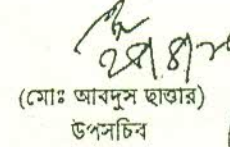 (মোঃ আবদুস ছাত্তার)
উপসচিব